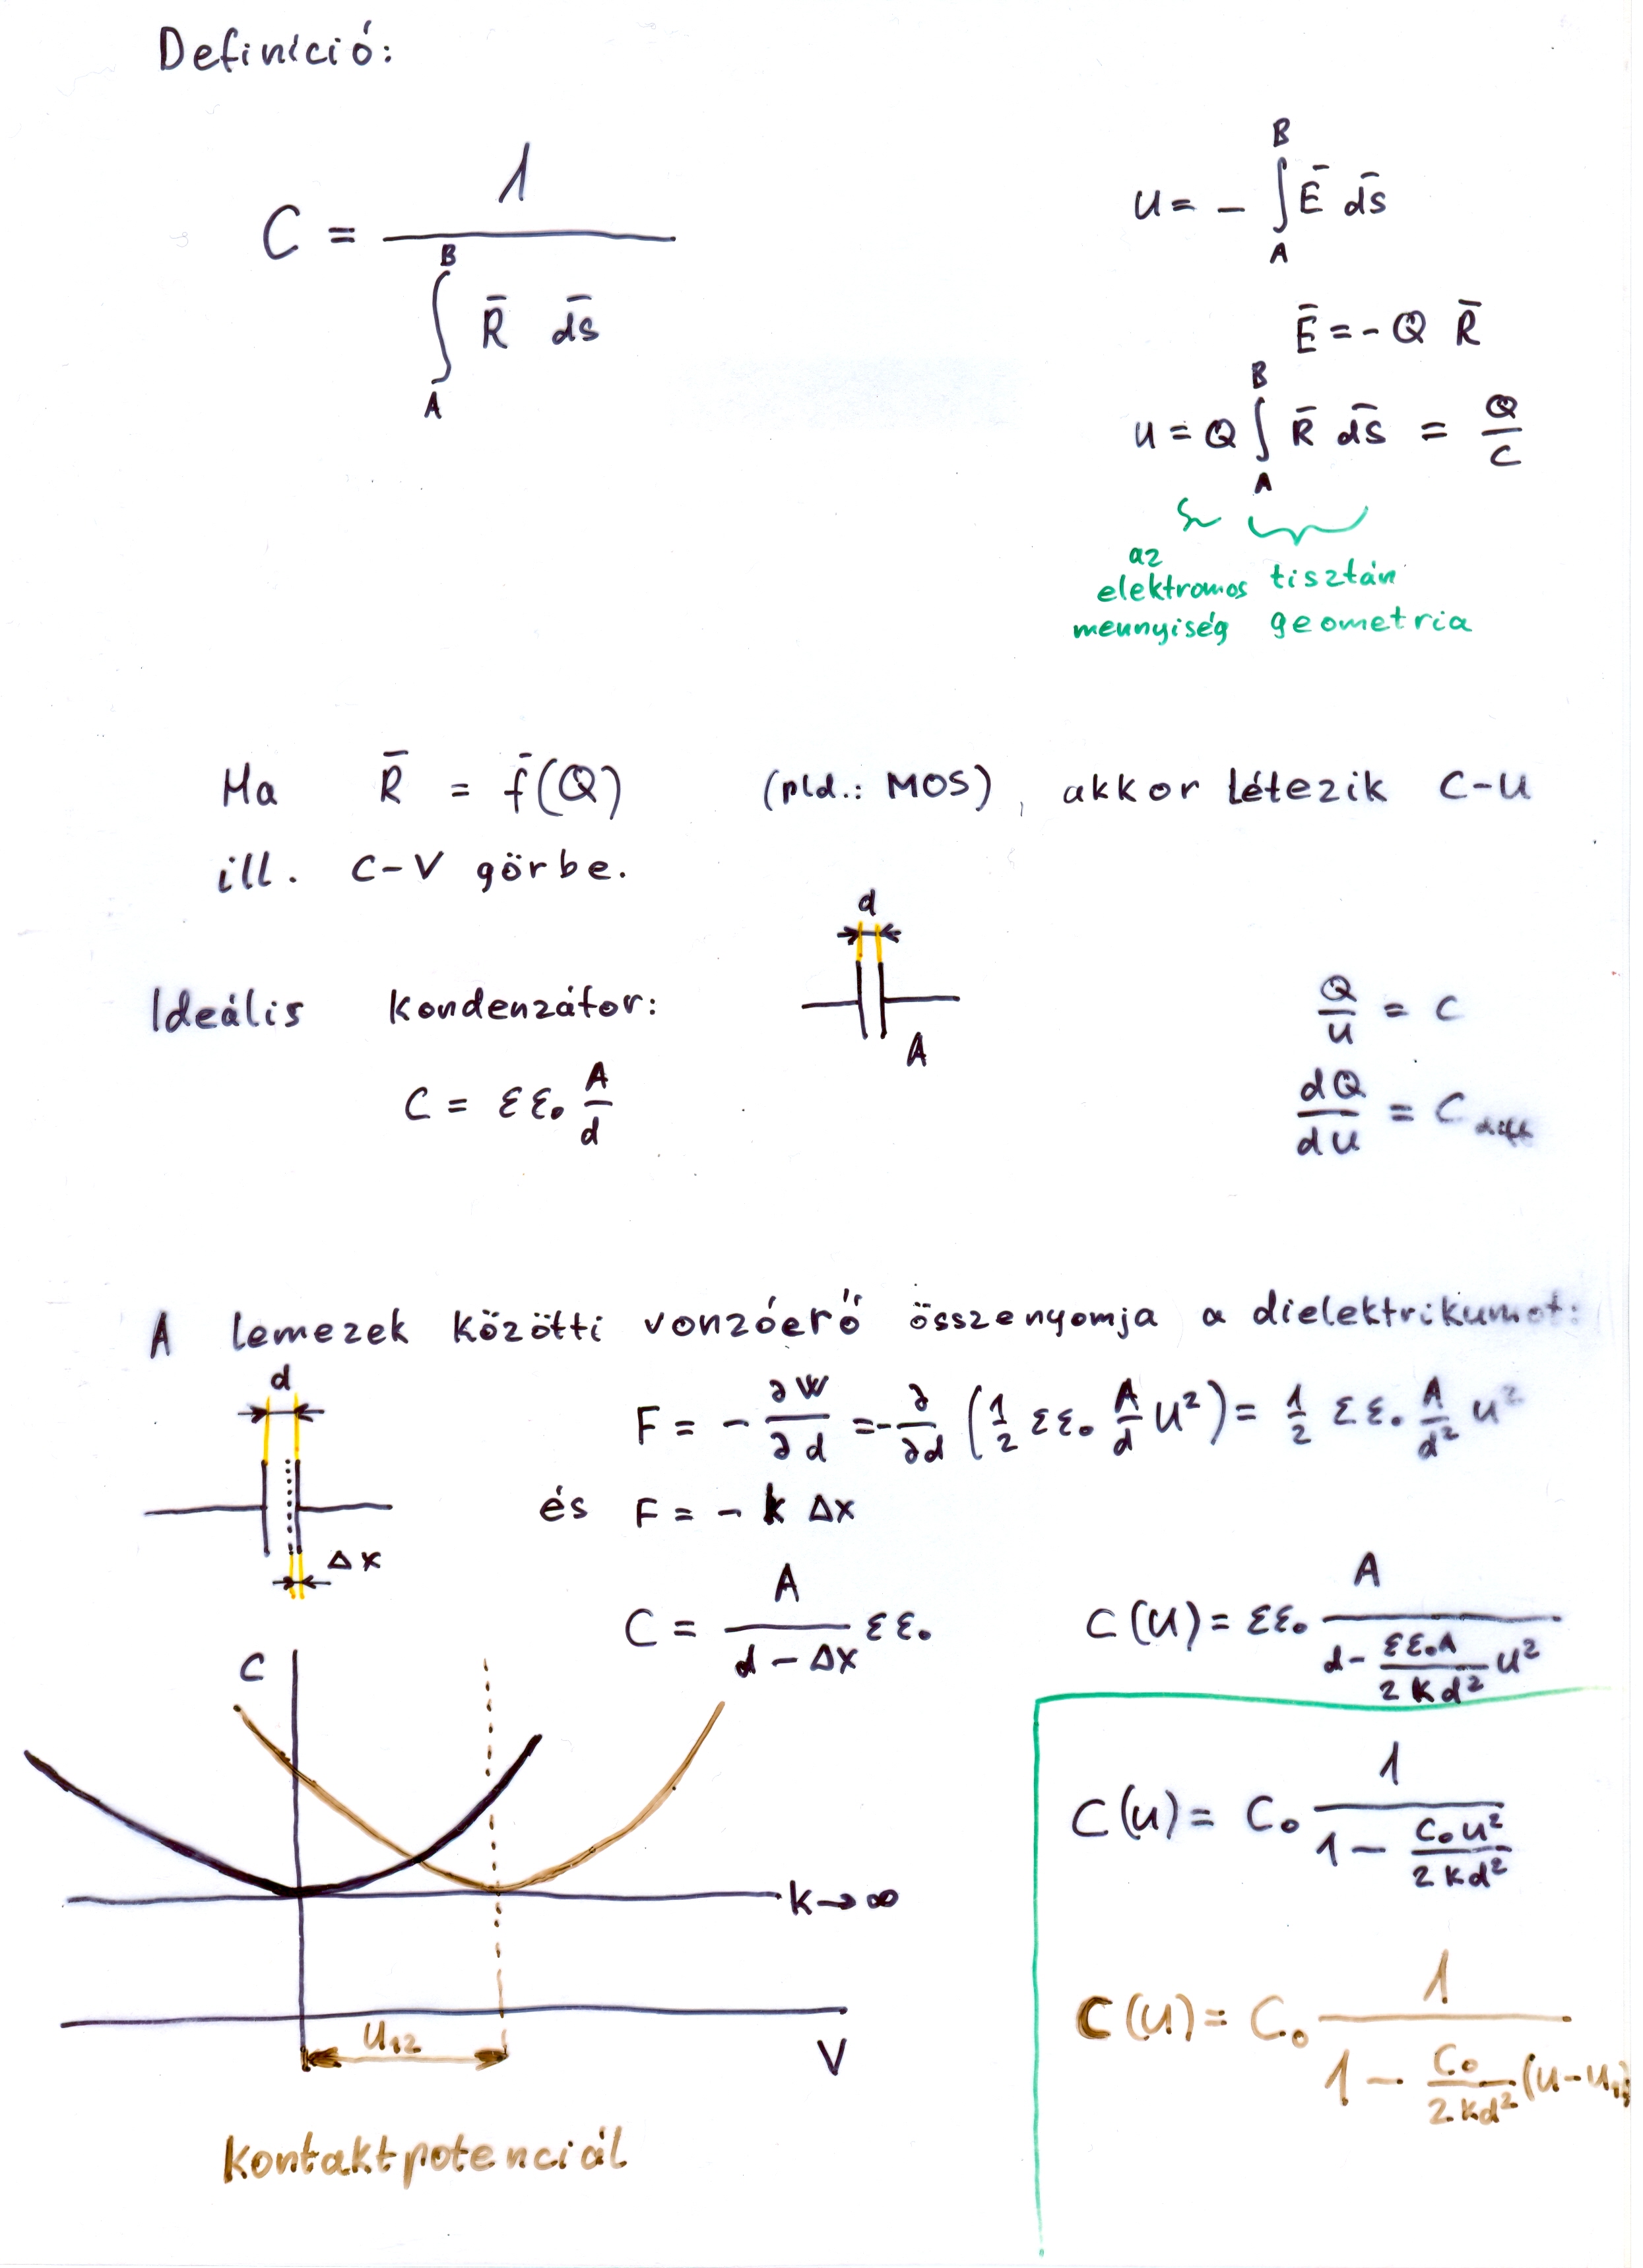 Definíció:
C = 1 / ∫_A^B R̄ d̄s
U = - ∫_A^B Ē d̄s
Ē = - Q R̄
U = Q ∫_A^B R̄ d̄s = Q/C
az elektromos mennyiség
tisztán geometria
Ha R̄ = f̄(Q) (pld.: MOS), akkor létezik C-U
ill. C-V görbe.
d
Ideális kondenzátor:
A
Q/U = C
C = εε₀ A/d
dQ/dU = C diff
A lemezek közötti vonzóerő összenyomja a dielektrikumot:
d
F = - ∂W/∂d = - ∂/∂d (1/2 εε₀ A/d U²) = 1/2 εε₀ A/d² U²
és F = - k Δx
Δx
C = A/(d - Δx) εε₀
C(U) = εε₀ A/(d - (εε₀A/2kd²) U²)
C
C(U) = C₀ 1/(1 - C₀U²/2kd²)
k→∞
C(U) = C₀ 1/(1 - C₀/2kd² (U-U₁
U₁₂
V
kontaktpotenciál